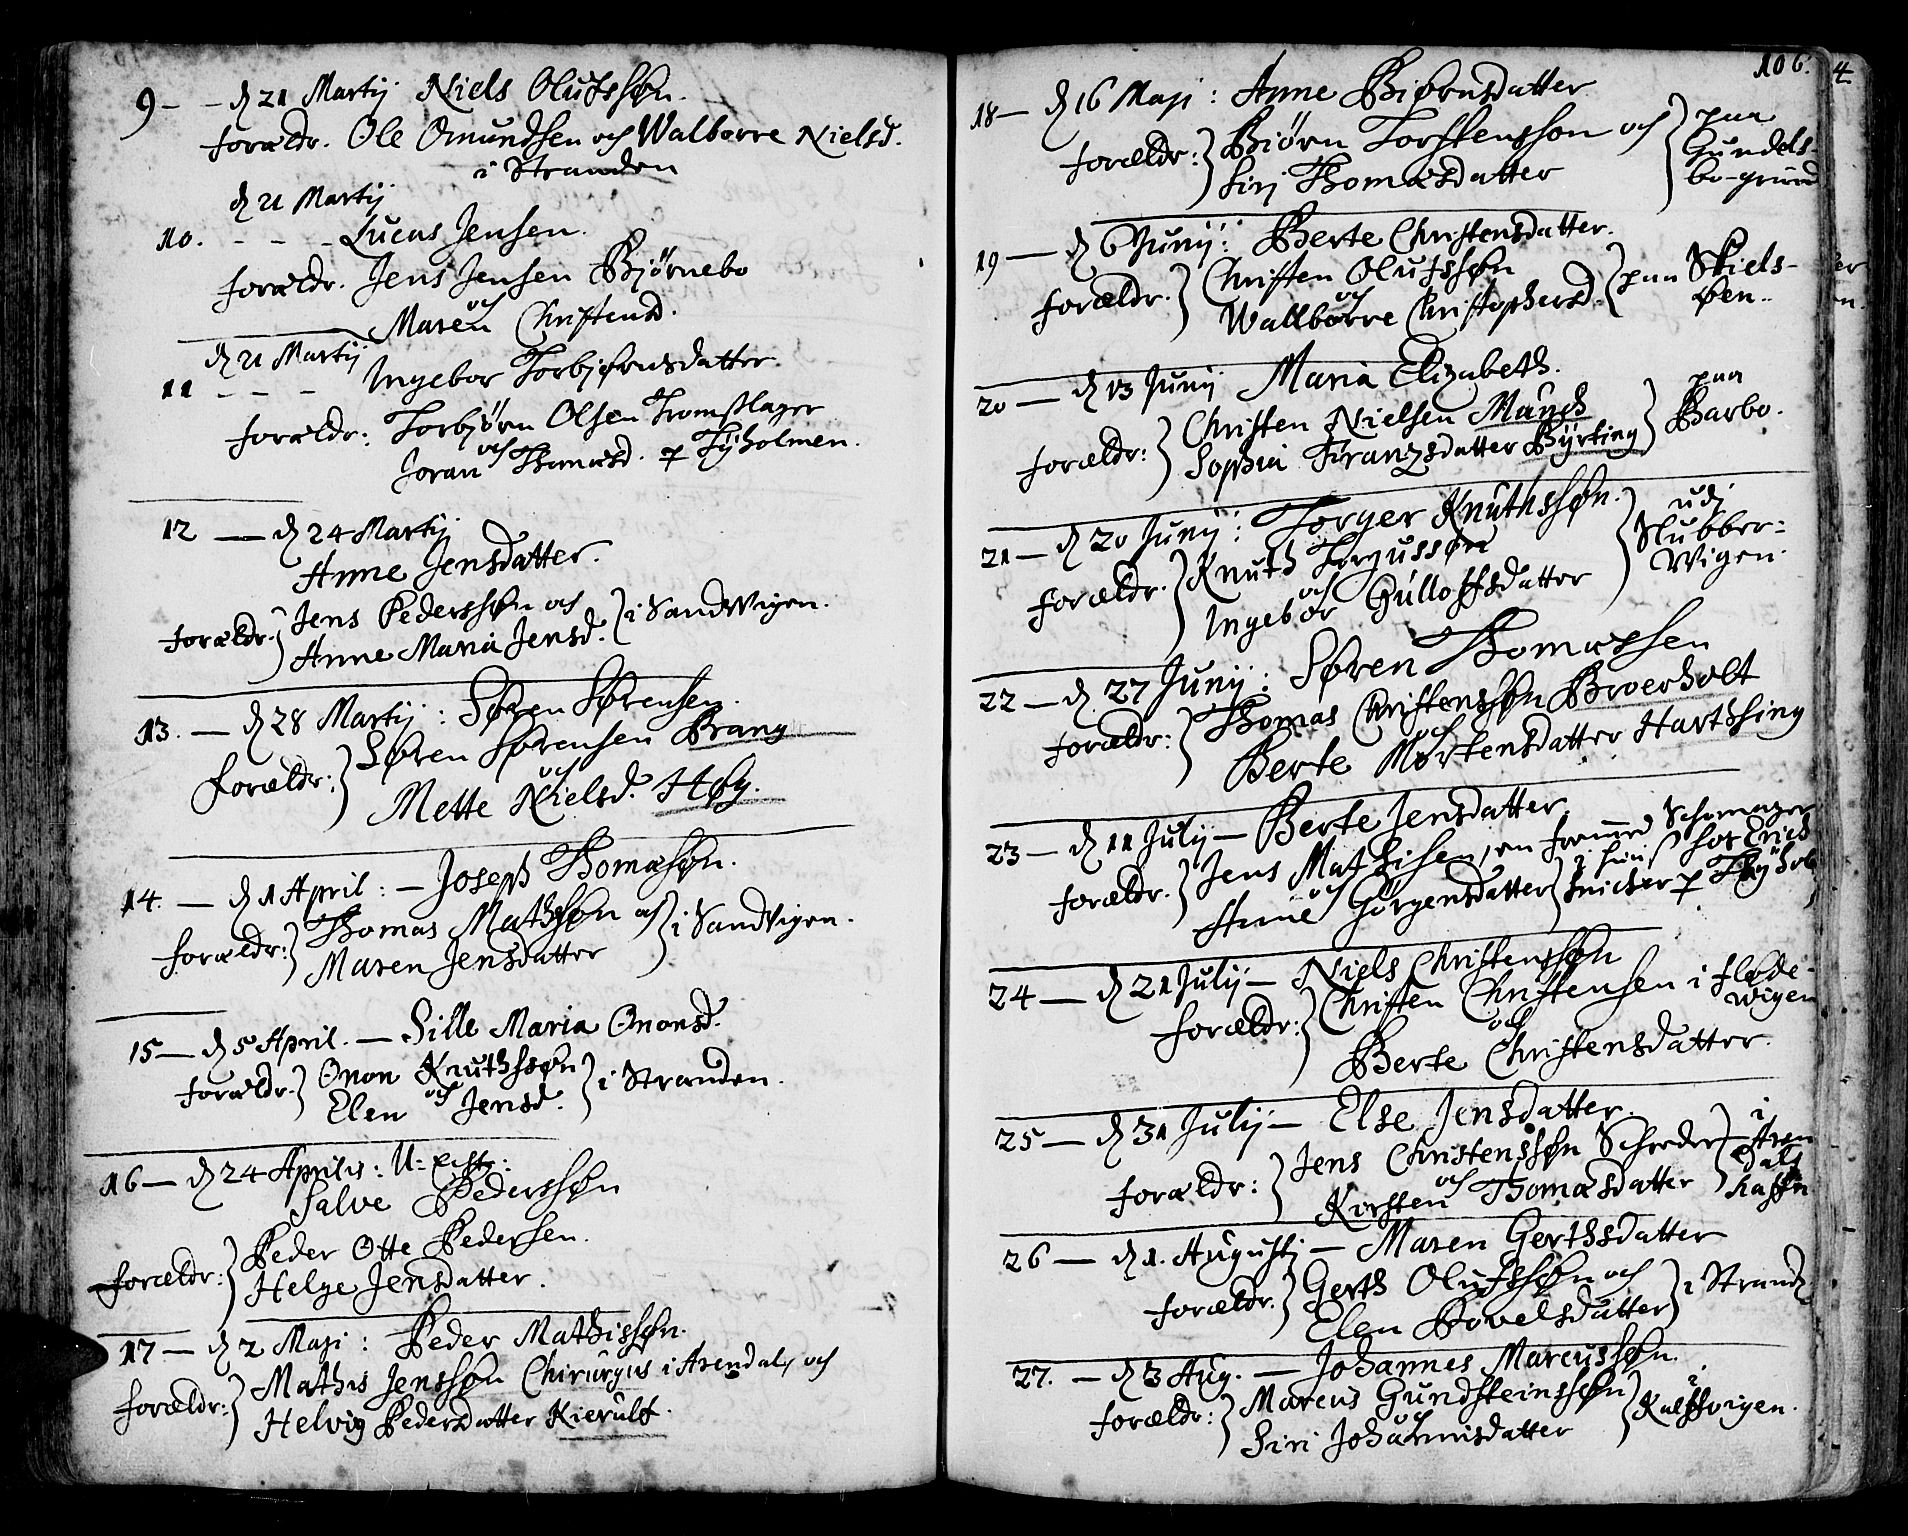 9 - - d 21 Martij Niels Olufssøn.
forældr. Ole Omundsen och Walborre Nielsd.
i Stranden
d 21 Martij
10. - - - Lucas Jensen.
forældr. Jens Jensen Bjørnebo
och
Maren Christensd.
d 21 Martij
11 - - - Ingebor Torbjørnsdatter
forældr: Torbjørn Olsen Tromslager
och
Joran Thomæsd. p Tyholmen.
12 — d 24 Martij
Anne Jensdatter.
forældr. Jens Pederssøn och
Anne Maria Jensd. i Sandvigen.
13. — d 28 Martij: Søren Sørensen.
forældr: Søren Sørensen Brang
och
Mette Nielsd. Høy.
14. — d 1 April: — Joseph Thomæsøn.
forældr: Thomas Mathssøn och
Maren Jensdatter i Sandvigen.
15 — d 5 April. — Sille Maria Ononsd.
forældr. Onon Knuthssøn
och
Elen Jensd. i Stranden.
16 — d 24 Aprilis: U: echt:
Salve Pederssøn
forældr: Peder Otte Pedersen.
Helge Jensdatter.
17 — d 2 Maji: Peder Mathissøn.
forældr: Mathis Jenssøn Chirurgus i Arendal, och
Helvig Pedersdatter Kierulf.
106.
4
18 — d 16 Maji: Anne Biørnsdatter
forældr: Biørn Torstensson och
Siri Thomæsdatter
paa
Gundels-
bo-grund
19 — d 6 Junij: Berte Christensdatter.
forældr. Christen Olufssøn
och
Wallborre Christophersd. paa Skiels-
øen.
20 — d 13 Junij Maria Elizabeth.
forældr: Christen Nielsen Munch
Sophia Franzsdatter Byrting
paa
Barbo.
21 — d 20 Junij: Torger Knuthssøn.
forældr. Knuth Torgussøn
och
Ingebor Gulloffsdatter
udj
Slubber-
Wigen.
22 — d 27 Junij: Søren Thomæsen
forældr: Thomas Christenssøn Broerholt
och
Berte Mortensdatter Harthsing
23 — d 11 July — Berte Jensdatter.
forældr. Jens Mathisen, en fremmed Schomager
och
Anne Görgensdatter hos Erich
Snicker p Thyhol
24 — d 21 July — Niels Christenssøn
forældr: Christen Christensen i Fløde-
wigen
och
Berte Christensdatter.
25 — d 31 July — Else Jensdatter.
forældr: Jens Christenssøn Schreder
och
Kirsten Thomæsdatter
i
Aren
dals
haffn
26 — d 1. Augustj — Maren Gerthsdatter
forældr. Gerth Olufssøn och
Elen Povelsdatter i Strand
27. — d 3 Aug. — Johannes Marcussøn.
forældr: Marcus Gundsteinssøn
och
Siri Johannisdatter
i
Kalffvigen.